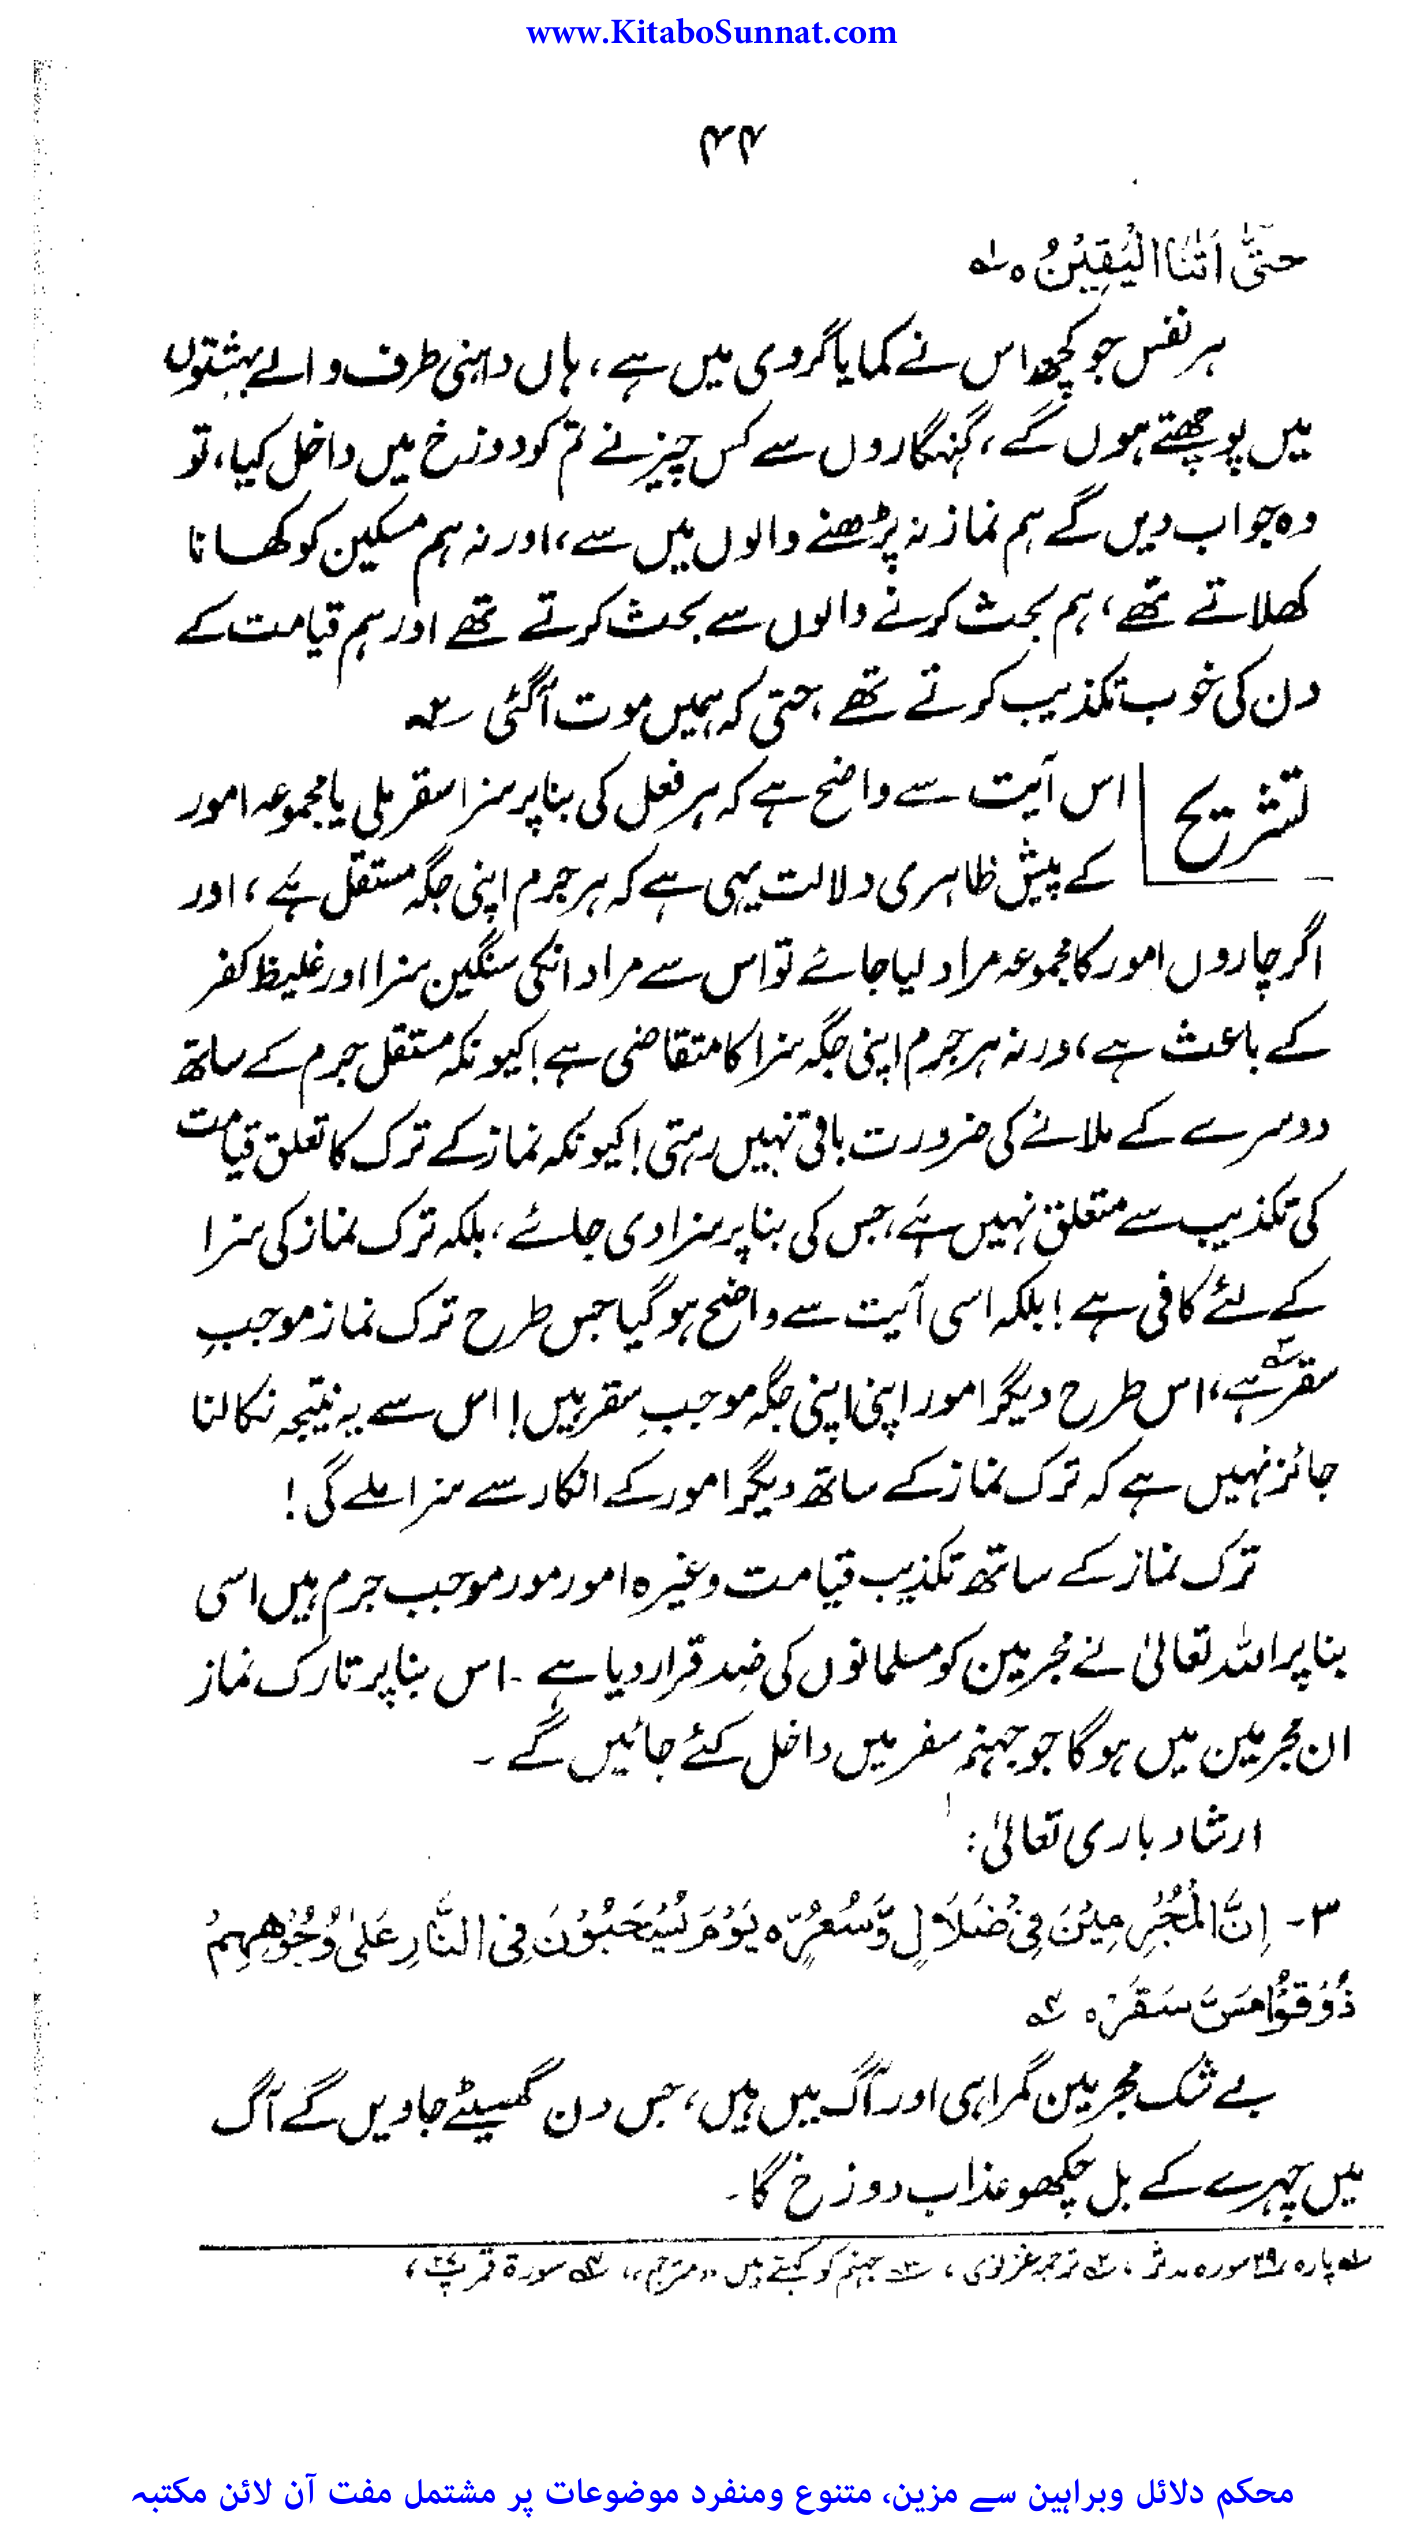 www.KitaboSunnat.com
۴۴
حَتّٰٓى اَتٰنَا الْيَقِيْنُ ه لہ
ہر نفس جو کچھ اس نے کمایا گروی میں ہے، ہاں داہنی طرف والے بہشتوں
میں پوچھتے ہوں گے، گنہگاروں سے کس چیز نے تم کو دوزخ میں داخل کیا، تو
وہ جواب دیں گے ہم نماز نہ پڑھنے والوں میں سے، اور نہ ہم مسکین کو کھانا
کھلاتے تھے، ہم بحث کرنے والوں سے بحث کرتے تھے اور ہم قیامت کے
دن کی خوب تکذیب کرتے تھے، حتی کہ ہمیں موت آگئی ۲ہ
تشریح اس آیت سے واضح ہے کہ ہر فعل کی بنا پر سزا سقر ملی یا مجموعہ امور
کے پیش ظاہری دلالت یہی ہے کہ ہر جرم اپنی جگہ مستقل ہے، اور
اگر چاروں امور کا مجموعہ مراد لیا جائے تو اس سے مراد انکی سنگین سزا اور غلیظ کفر
کے باعث ہے، ورنہ ہر جرم اپنی جگہ سزا کا متقاضی ہے! کیونکہ مستقل جرم کے ساتھ
دوسرے کے ملانے کی ضرورت باقی نہیں رہتی! کیونکہ نماز کے ترک کا تعلق قیامت
کی تکذیب سے متعلق نہیں ہے، جس کی بنا پر سزا دی جائے، بلکہ ترک نماز کی سزا
کے لئے کافی ہے! بلکہ اسی آیت سے واضح ہوگیا جس طرح ترک نماز موجبِ
سقر۳ہ ہے، اس طرح دیگر امور اپنی اپنی جگہ موجبِ سقر ہیں! اس سے یہ نتیجہ نکالنا
جائز نہیں ہے کہ ترک نماز کے ساتھ دیگر امور کے انکار سے سزا ملے گی!
ترک نماز کے ساتھ تکذیب قیامت وغیرہ امور مور موجب جرم ہیں اسی
بنا پر اللہ تعالیٰ نے مجرمین کو مسلمانوں کی ضد قرار دیا ہے۔ اس بنا پر تارک نماز
ان مجرمین میں ہوگا جو جہنم سفر میں داخل کئے جائیں گے۔
ارشاد باری تعالیٰ:
۳۔ اِنَّ الْمُجْرِمِيْنَ فِيْ ضَلَالٍ وَّسُعُرٍ ه يَوْمَ يُسْحَبُوْنَ فِى النَّارِ عَلٰى وُجُوْهِهِمْ
ذُوْقُوْا مَسَّ سَقَرَ ه ۴ہ
بے شک مجرمین گمراہی اور آگ میں ہیں، جس دن گھسیٹے جاویں گے آگ
میں چہرے کے بل چکھو عذاب دوزخ گا۔
لہ پارہ ۲۹ سورہ مدثر، ۲ہ ترجمہ غزنوی، ۳ہ جہنم کو کہتے ہیں "مترجم"، ۴ہ سورۃ قمر پ۲۷،
محکم دلائل وبراہین سے مزین، متنوع ومنفرد موضوعات پر مشتمل مفت آن لائن مکتبہ